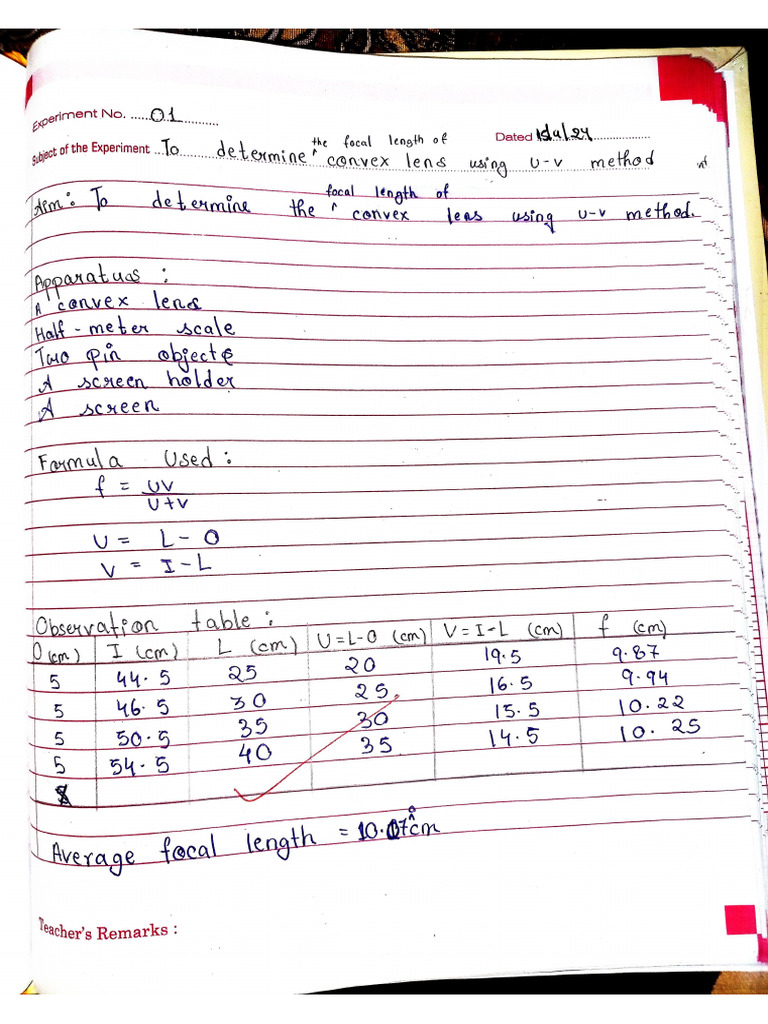 Experiment No. ......01..........
Subject of the Experiment ...To determine the focal length of convex lens using u-v method
Dated
Aim: To determine the focal length of convex lens using u-v method.
Apparatus :
A convex lens
Half-meter scale
Two pin objects
A screen holder
A screen
Formula Used :
f = uv
u+v
U = L - O
V = I - L
Observation table :
O (cm) I (cm) L (cm) U=L-O (cm) V=I-L (cm) f (cm)
5 44.5 25 20 19.5 9.87
5 46.5 30 25 16.5 9.94
5 50.5 35 30 15.5 10.22
5 54.5 40 35 14.5 10.25
Average focal length = 10.07cm
Teacher's Remarks :